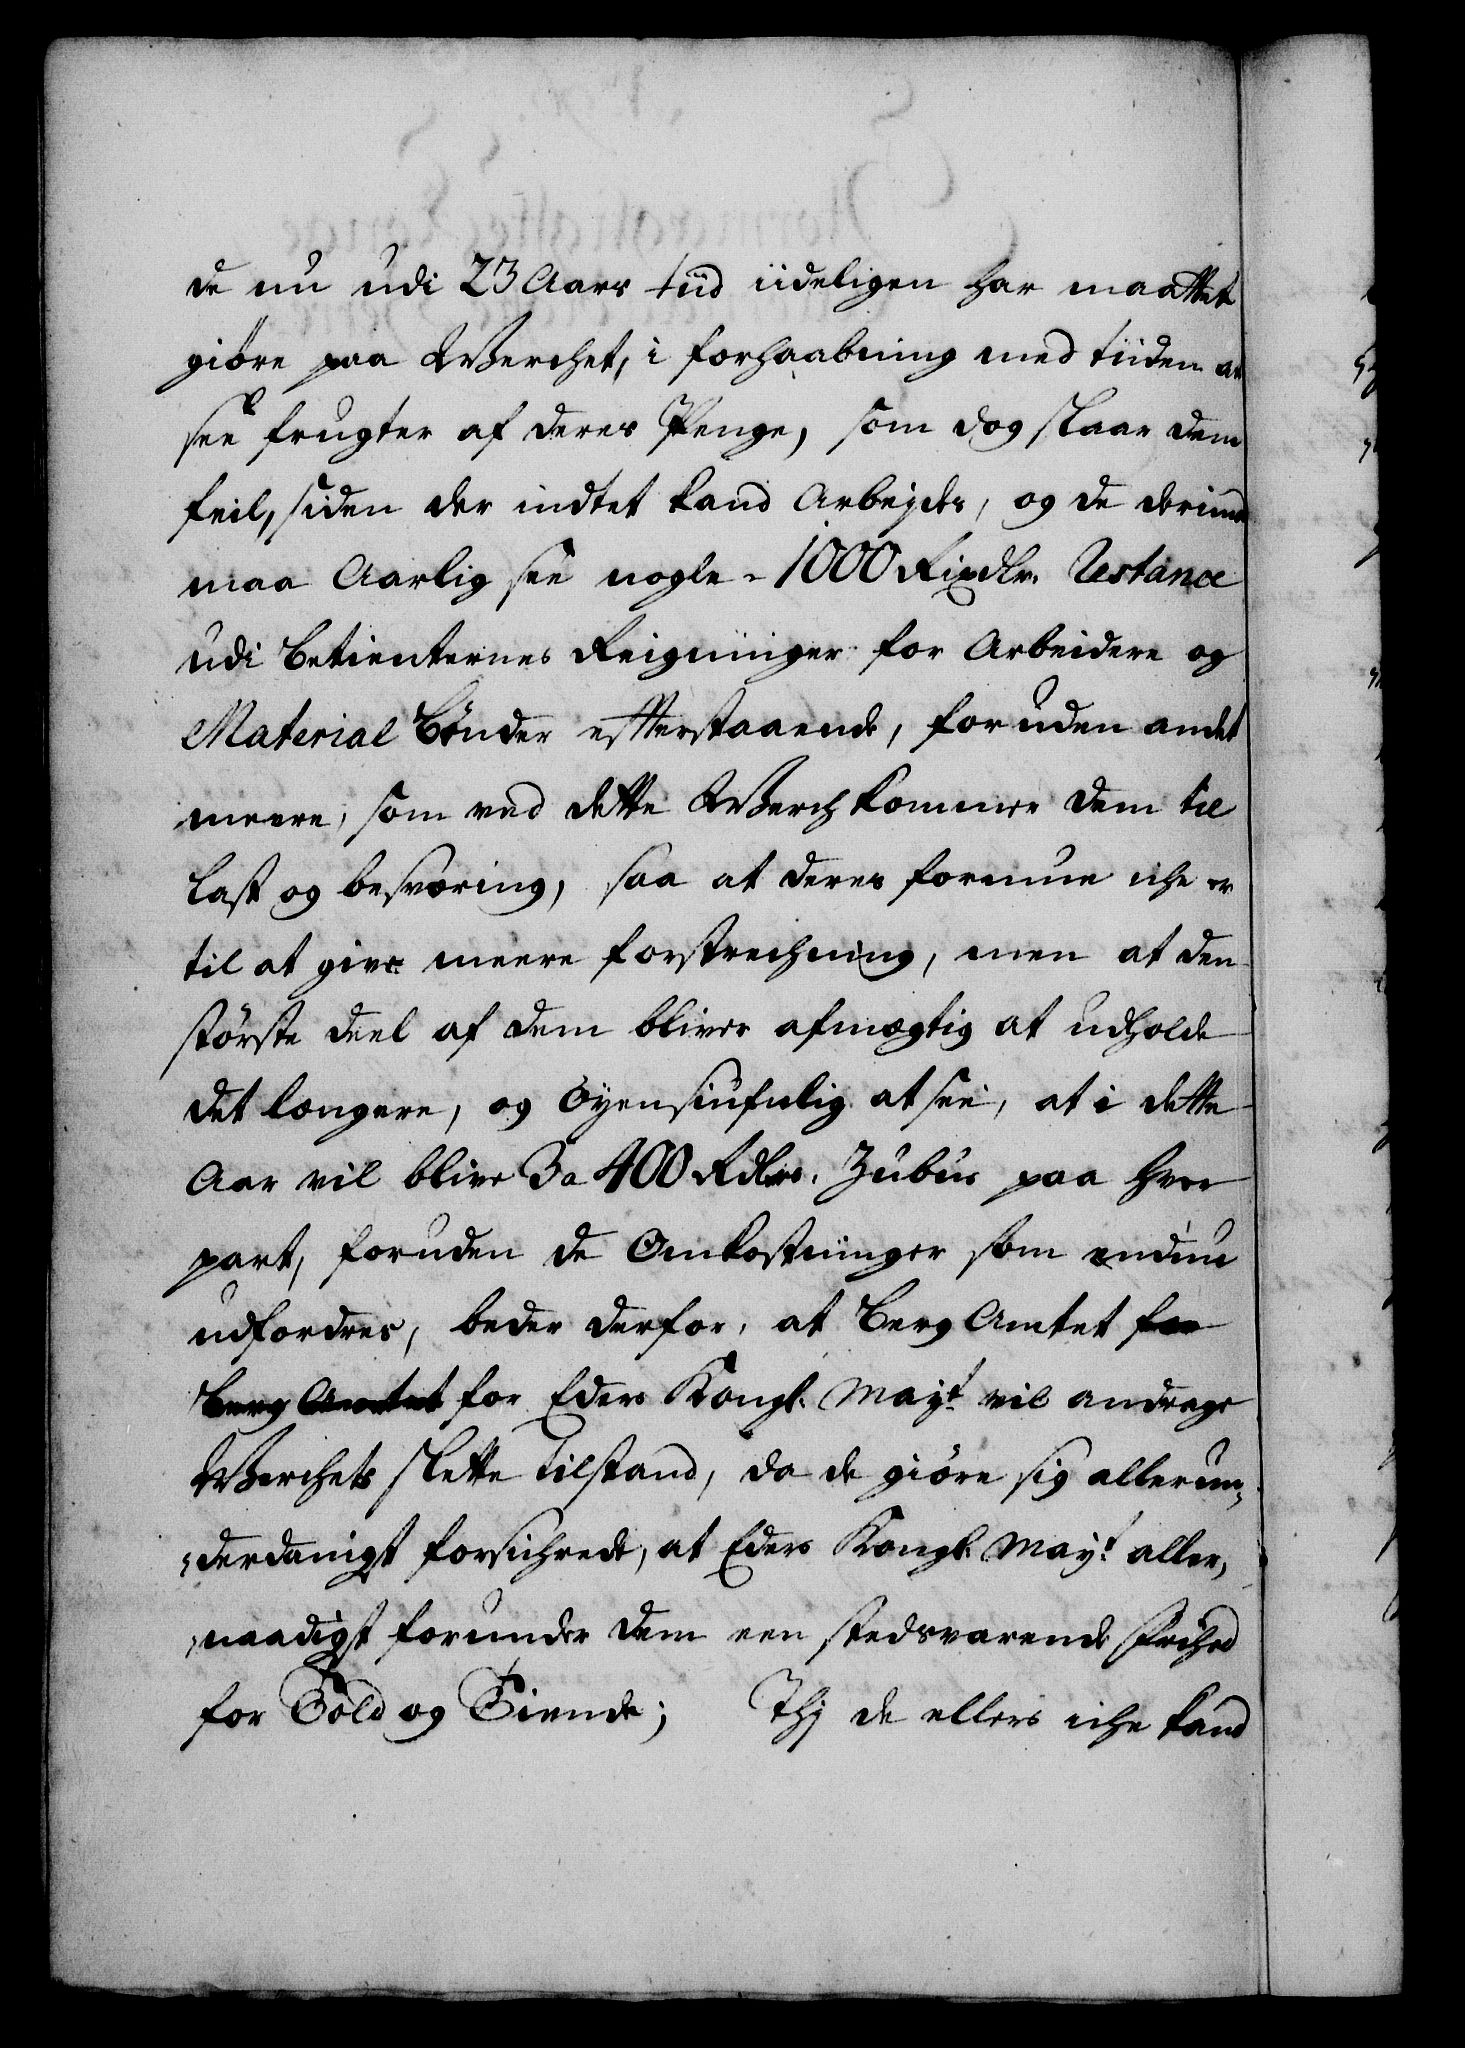 de nu udi 23 Aars tiid iideligen har maattet
giöre paa Werchet, i forhaabning med tiiden at
see frugter af deres Penge, som dog slaar dem
feil, siden der indtet kand Arbejdes, og de derimod
maa Aarlig see nogle 1000 Rixdlr. Restance
udi Betienternes Reigninger for Arbeidere og
Material Bönder effterstaaende, foruden andet
meere, som ved dette Werch kommer dem til
last og besværing, saa at deres formue iche er
til at give meere forstrechning, men at den
störste deel af dem bliver afmægtig at udholde
det længere, og Öyensiunlig at see, at i dette
Aar vil blive 3 a 400 Rdlrs. Zubus paa hver
part, foruden de Omkostninger som endnu
udfordres, beder derfor, at Berg Amtet for
Berg Amtet for Eders Kongl. Mayt. vil andrage
Werchets slette tilstand, da de giöre sig allerun„
„derdanigst forsichrede, at Eders Kongl. Mayt. aller„
„naadigst forunder dem een stedsvarende Frihed
for Told og Tiende; Thj de ellers iche kand